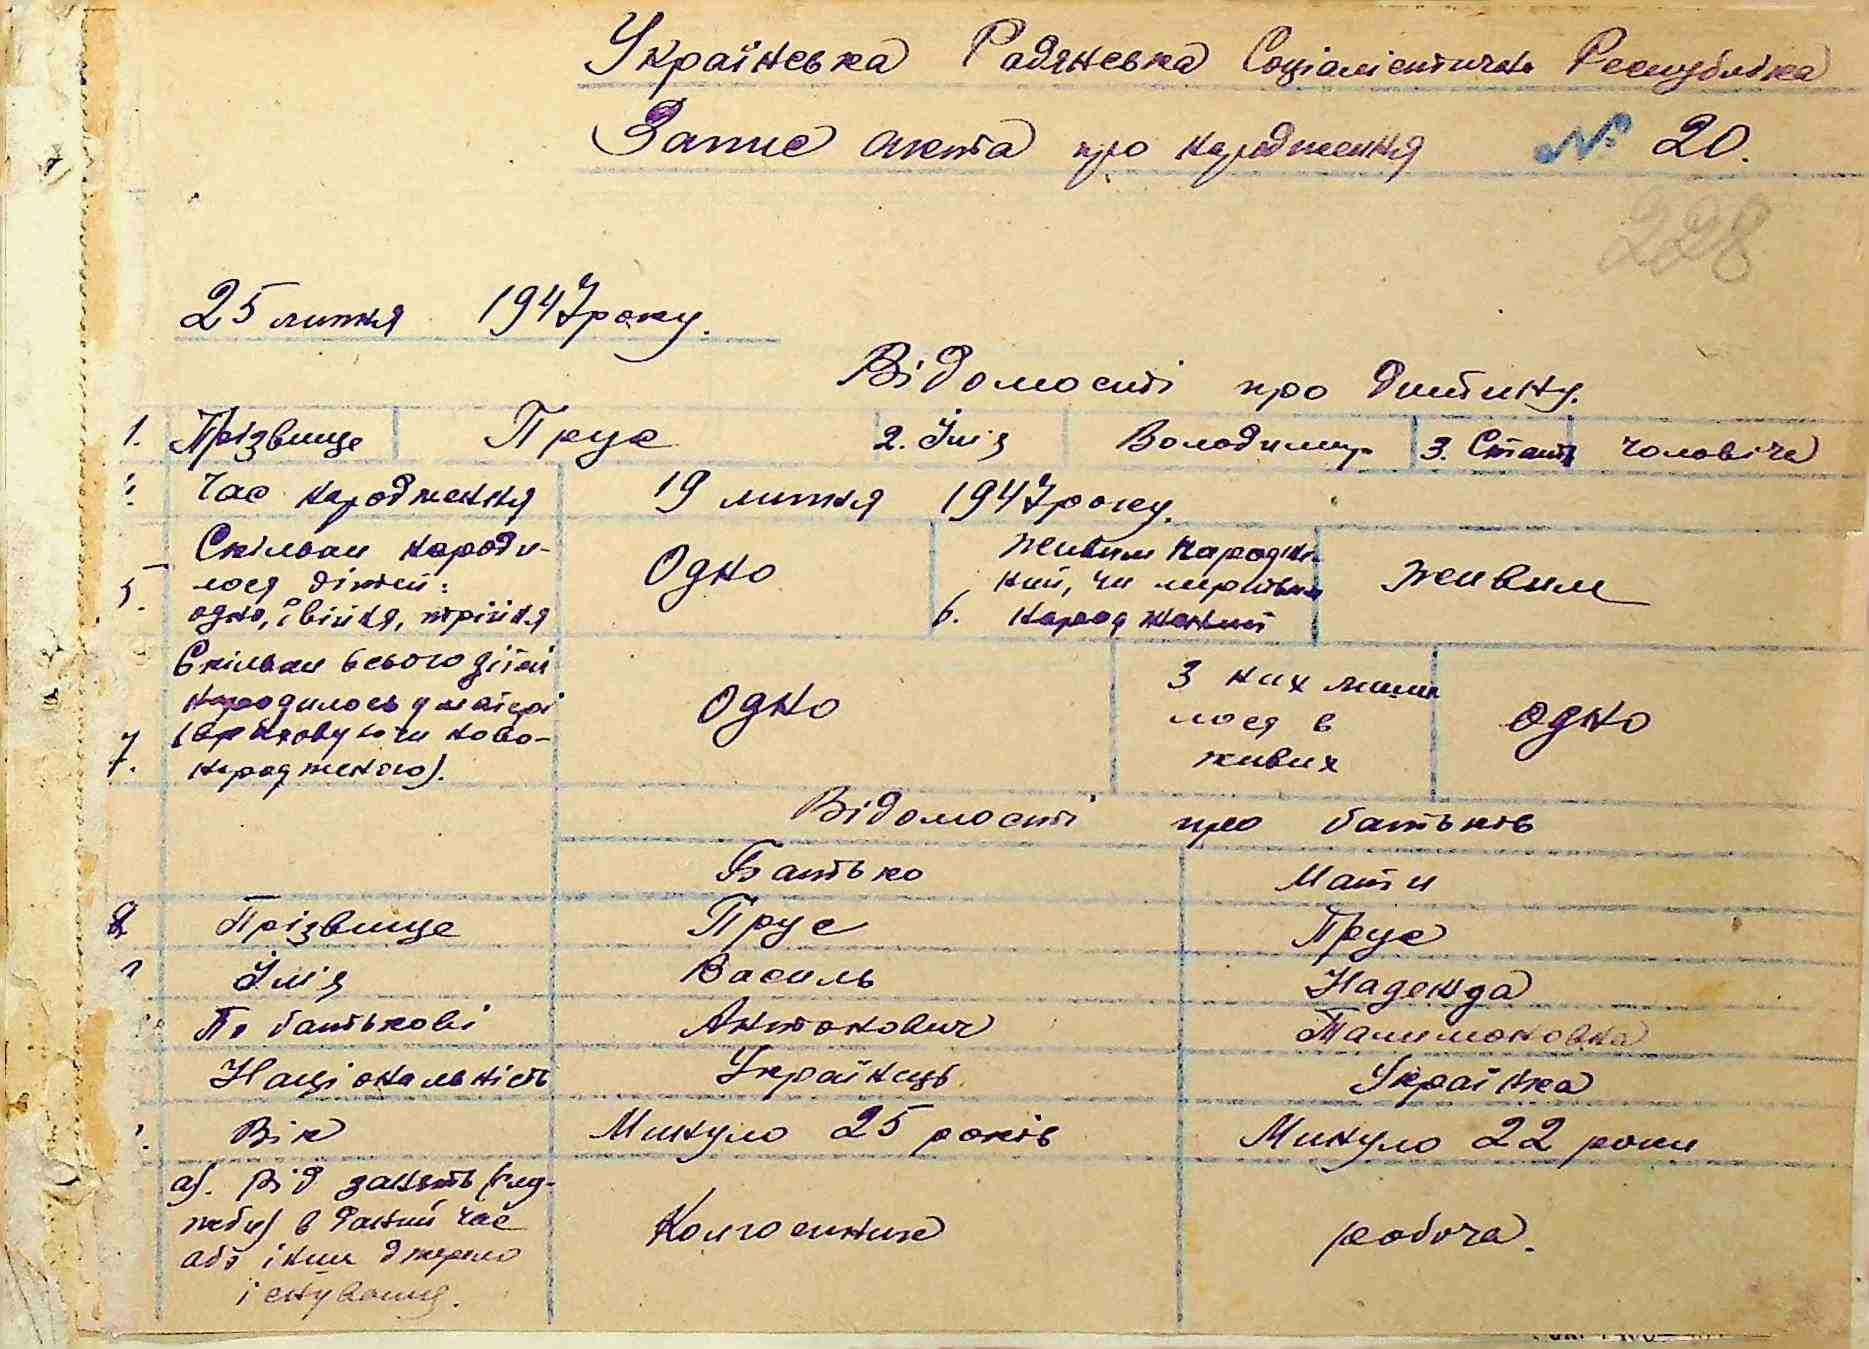 Українська Радянська Соціалістична Республіка
Запис акта про народження № 20.
228
25 липня 1947 року.
Відомості про дитину.
1. Прізвище Прус 2. Ім'я Володимир 3. Стать чоловіча
Час народження 19 липня 1947 року.
Скільки народи-
лося дітей:
5. одно, двійня, трійня
Одно
Живим народже-
ний, чи мертвим
6. народжений
Живим
Скільки всього дітей
народилось у матері
(враховуючи ново-
7. народженого).
Одно
З них лиши
лося в
живих
одно
Відомості про батьків
Батько Мати
8 Прізвище Прус Прус
Ім'я Василь Надежда
По батькові Антонович
Національність Українець Українка
Вік Минуло 25 років Минуло 22 роки
а). Рід занять (слу-
жби) в даний час
або інше джерело
існування.
Колгоспник робоча.